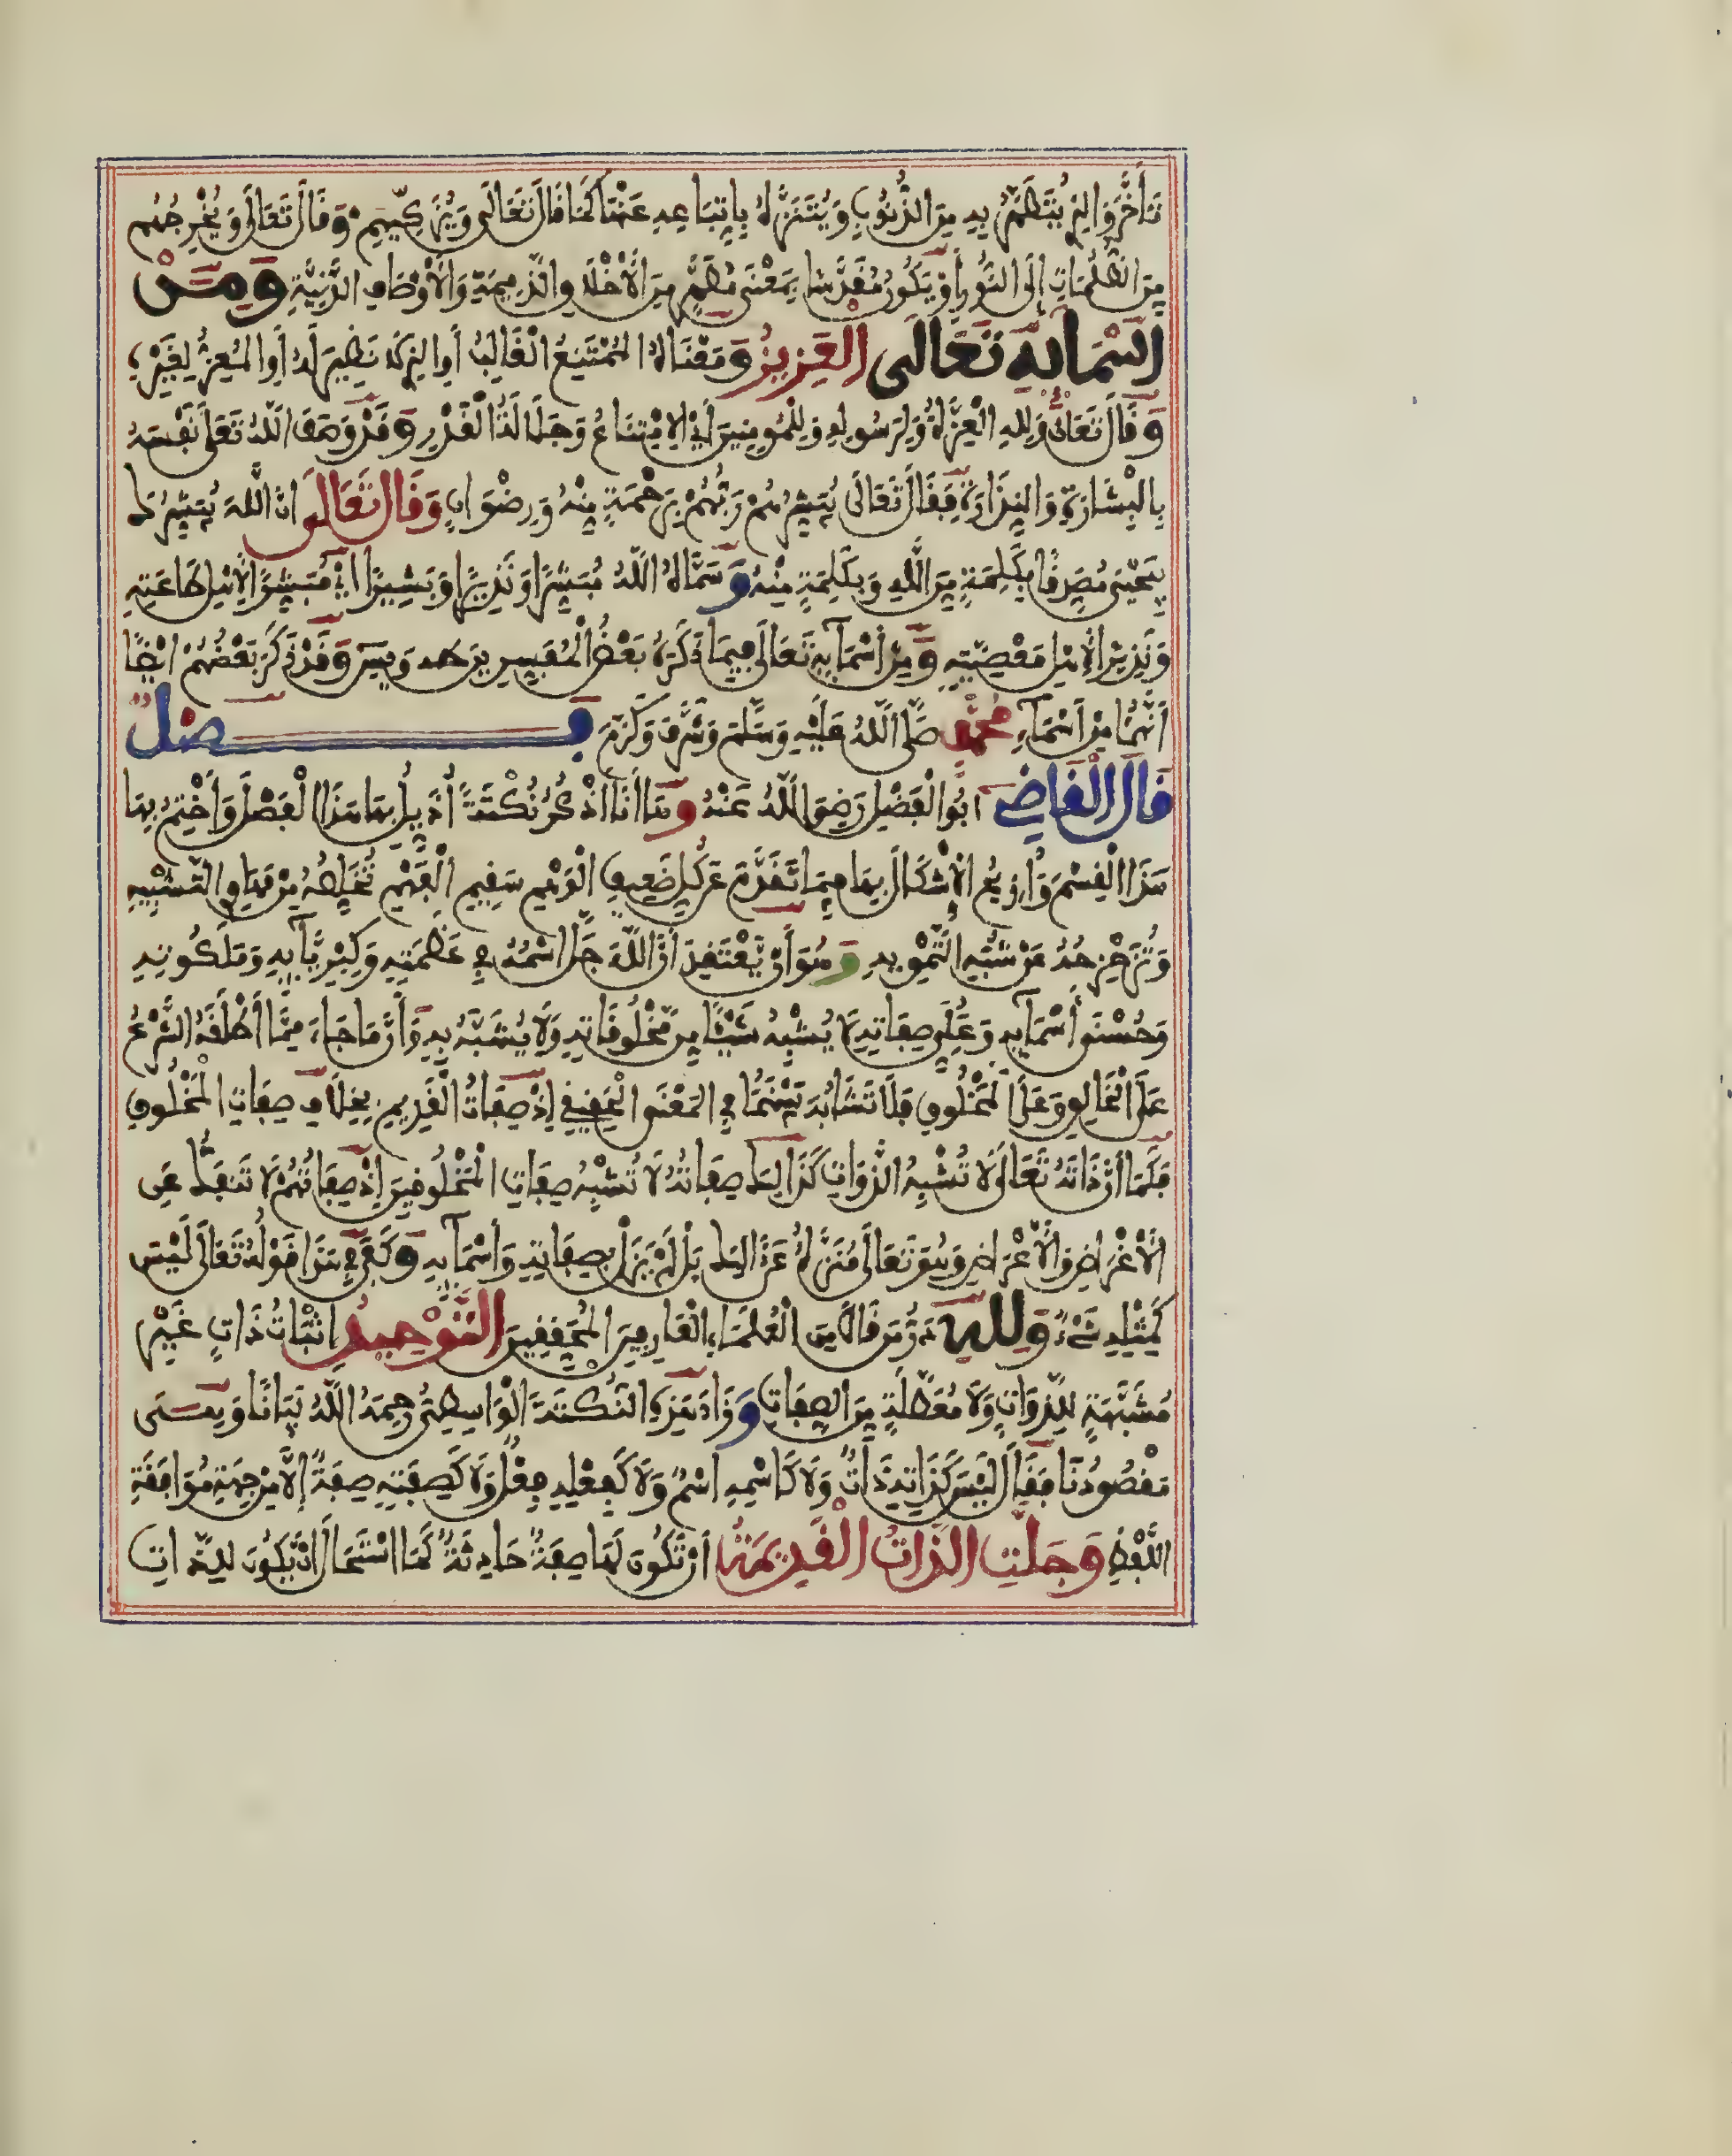 تَأَخَّرَ وَالذِي يُتَطَهَّرُ بِهِ مِنَ الذُّنُوبِ وَيُتَنَزَّهُ بِاتِّبَاعِهِ عَنْهَا كَمَا قَالَ تَعَالَى وَيُزَكِّيهِمْ وَقَالَ تَعَالَى وَيُخْرِجُهُم
مِّنَ الظُّلُمَاتِ إِلَى النُّورِ أَوْ يَكُونُ مُقَدَّسًا بِمَعْنَى مُطَهَّرٍ مِنَ الْأَخْلَاقِ الذَّمِيمَةِ وَالْأَوْصَافِ الدَّنِيَّةِ وَمِنْ
اَسْمَائِهِ تَعَالَى الْعَزِيزُ وَمَعْنَاهُ الْمُمْتَنِعُ الْغَالِبُ أَوِ الذِي لَا نَظِيرَ لَهُ أَوِ الْمُعِزُّ لِغَيْرِهِ
وَقَالَ تَعَالَى وَلِلهِ الْعِزَّةُ وَلِرَسُولِهِ وَلِلْمُومِنِينَ أَيِ الِامْتِنَاعُ وَجَلَالَةُ الْقَدْرِ وَقَدْ وَصَفَ اللَّهُ تَعَلَى نَفْسَهُ
بِالْبِشَارَةِ وَالنِّذَارَةِ فَقَالَ تَعَالَى يُبَشِّرُهُمْ رَبُّهُمْ بِرَحْمَةٍ مِنْهُ وَرِضْوَانٍ وَقَالَ تَعَالَى انَّ اللَّهَ يُبَشِّرُكَ
بِيَحْيَى مُصَدِّقًا بِكَلِمَةٍ مِنَ اللَّهِ وَبِكَلِمَةٍ مِنْهُ وَسَمَّاهُ اللَّهُ مُبَشِّرًا وَنَذِيرًا وَبَشِيرًا ايْ مُبَشِّرًا لِأَهْلِ طَاعَتِهِ
وَنَذِيرًا لِأَهْلِ مَعْصِيَتِهِ وَمِنْ أَسْمَائِهِ تَعَالَى فِيمَا ذَكَرَهُ بَعْضُ الْمُفَسِّرِينَ طه وَيسَ وَقَدْ ذَكَرَ بَعْضُهُمْ ايْضًا
أَنَّهُمَا مِنْ أَسْمَآءِ مُحَمَّدٍ صَلَّى اللَّهُ عَلَيْهِ وَسَلَّمَ وَشَرَّفَ وَكَرَّمَ فَصْلٌ
قَالَ الْقَاضِي ابُو الْفَضْلِ رَضِيَ اللَّهُ عَنْهُ وَهَا أَنَا اذْكُرُ نُكْتَةً أُذَيِّلُ بِهَا هَذَا الْفَصْلَ وَأَخْتِمُ بِهَا
هَذَا الْقِسْمَ وَأُزِيحُ الْإِشْكَالَ بِهَا فِيمَا تَقَدَّمَ عَنْ كُلِّ ضَعِيفِ الْوَهْمِ سَقِيمِ الْفَهْمِ تُخَلِّصُهُ مِنْ مَهَاوِي التَّشْبِيهِ
وَتُزَحْزِحُهُ عَنْ شُبَهِ التَّمْوِيهِ وَهُوَ أَنْ يَّعْتَقِدَ أَنَّ اللَّهَ جَلَّ اسْمُهُ فِي عَظَمَتِهِ وَكِبْرِيَآئِهِ وَمَلَكُوتِهِ
وَحُسْنَى أَسْمَآئِهِ وَعَلِيِّ صِفَاتِهِ لَا يُشْبِهُ شَيْئًا مِنْ مَّخْلُوقَاتِهِ وَلَا يُشَبَّهُ بِهِ وَأَنَّ مَا جَاءَ مِمَّا أَطْلَقَهُ الشَّرْعُ
عَلَى الْخَالِقِ وَعَلَى الْمَخْلُوقِ فَلَا تَشَابُهَ بَيْنَهُمَا فِي الْمَعْنَى الْحَقِيقِي إِذْ صِفَاتُ الْقَدِيمِ بِخِلَافِ صِفَاتِ الْمَخْلُوقِ
فَكَمَا أَنَّ ذَاتَهُ تَعَالَى لَا تُشْبِهُ الذَّوَاتِ كَذَالِكَ صِفَاتُهُ لَا تُشْبِهُ صِفَاتِ الْمَخْلُوقِينَ إِذْ صِفَاتُهُمْ لَا تَنفَكُّ عَنِ
الْأَعْرَاضِ وَالْأَغْرَاضِ وَهُوَ تَعَالَى مُنَزَّهٌ عَنْ ذَالِكَ بَلْ لَمْ يَزَلْ بِصِفَاتِهِ وَأَسْمَآئِهِ وَكَفَى فِي هَذَا قَوْلُهُ تَعَالَى لَيْسَ
كَمِثْلِهِ شَيْءٌ وَلِلهِ دَرُّ مَنْ قَالَ مِنَ الْعُلَمَاءِ الْعَارِفِينَ الْمُحَقِّقِينَ التَّوْحِيدُ إِثْبَاتُ ذَاتٍ غَيْرِ
مُشَبَّهَةٍ لِلذَّوَاتِ وَلَا مُعَطَّلَةٍ مِنَ الصِّفَاتِ وَزَادَ هَذِهِ النُّكْتَةَ الْوَاسِطِيُّ رَحِمَهُ اللَّهُ بَيَانًا وَهِيَ
مَقْصُودُنَا فَقَالَ لَيْسَ كَذَاتِهِ ذَاتٌ وَلَا كَاسْمِهِ اسْمٌ وَلَا كَفِعْلِهِ فِعْلٌ وَلَا كَصِفَتِهِ صِفَةٌ إِلَّا مِنْ جِهَةِ مُوَافَقَةِ
اللَّفْظِ وَجَلَّتِ الذَّاتُ الْقَدِيمَةُ أَنْ تَكُونَ لَهَا صِفَةٌ حَادِثَةٌ كَمَا اسْتَحَالَ أَنْ تَّكُونَ لِلذَّاتِ